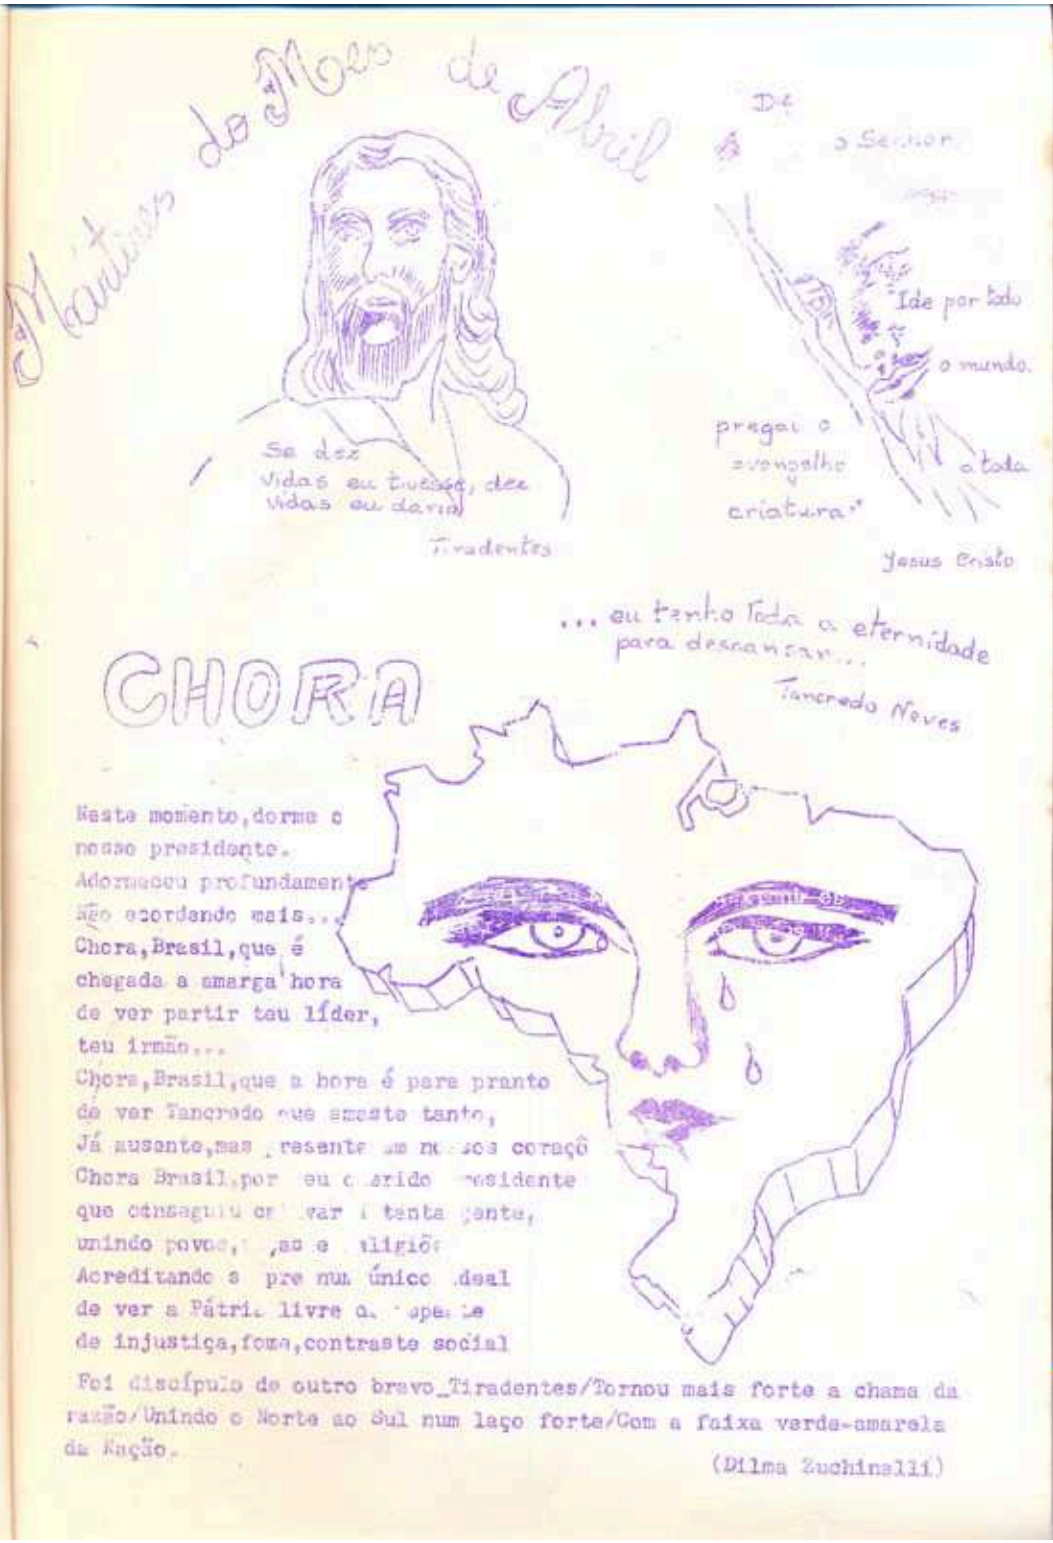 Mártires do Mes de Abril
o Senhor
"Ide por todo
o mundo.
pregai o
evangelho
a toda
criatura"
Jesus Cristo
Se dez
vidas eu tivesse, dez
vidas eu daria
Tiradentes
... eu tenho toda a eternidade
para descansar...
Tancredo Neves
CHORA
Neste momento,dorme o
nosso presidente.
Adormeceu profundamente
Não acordando mais...
Chora,Brasil,que é
chegada a amarga hora
de ver partir teu líder,
teu irmão...
Chora,Brasil,que a hora é para pranto
de ver Tancredo que amaste tanto,
Já ausente,mas presente em nossos coraçõ
Chora Brasil,por querido presidente
que conseguiu tanta gente,
unindo povos, e
Acreditando num único ideal
de ver a Pátria livre
de injustiça,fome,contraste social
Foi discípulo de outro bravo_Tiradentes/Tornou mais forte a chama da
razão/Unindo o Norte ao Sul num laço forte/Com a faixa verde-amarela
da Nação.
(Dilma Zuchinalli)